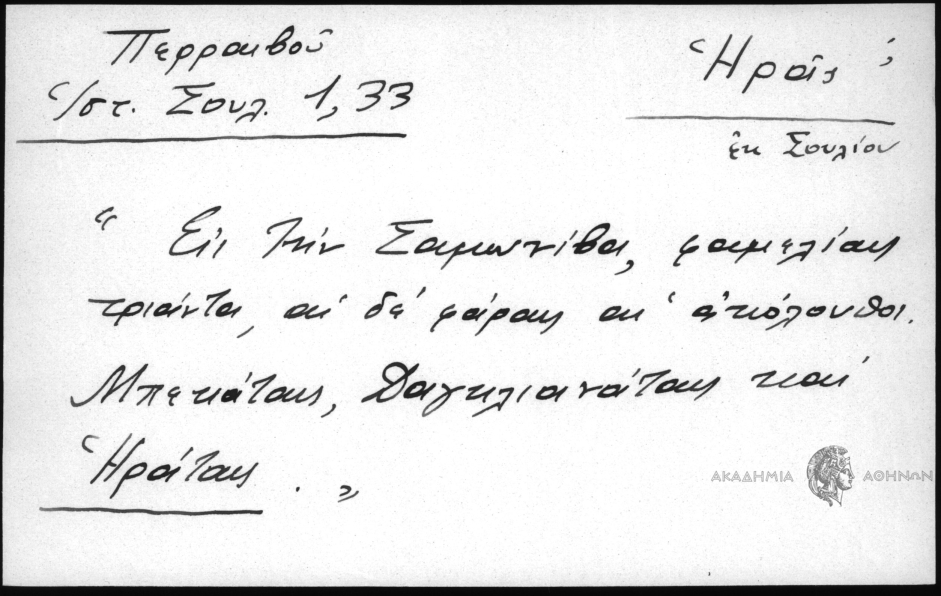 Περραιβοῦ
Ἱστ. Σουλ. 1,33
Ἡραῖς;
ἐκ Σουλίου
"Εἰς τὴν Σαμωνίβα, φαμελίαις
τριάντα, αἱ δέ φάραις αἱ ἀκόλουθοι.
Μπεκάταις, Δαγκλιανάταις καί
Ἡράταις . "
ΑΚΑΔΗΜΙΑ ΑΘΗΝΩΝ